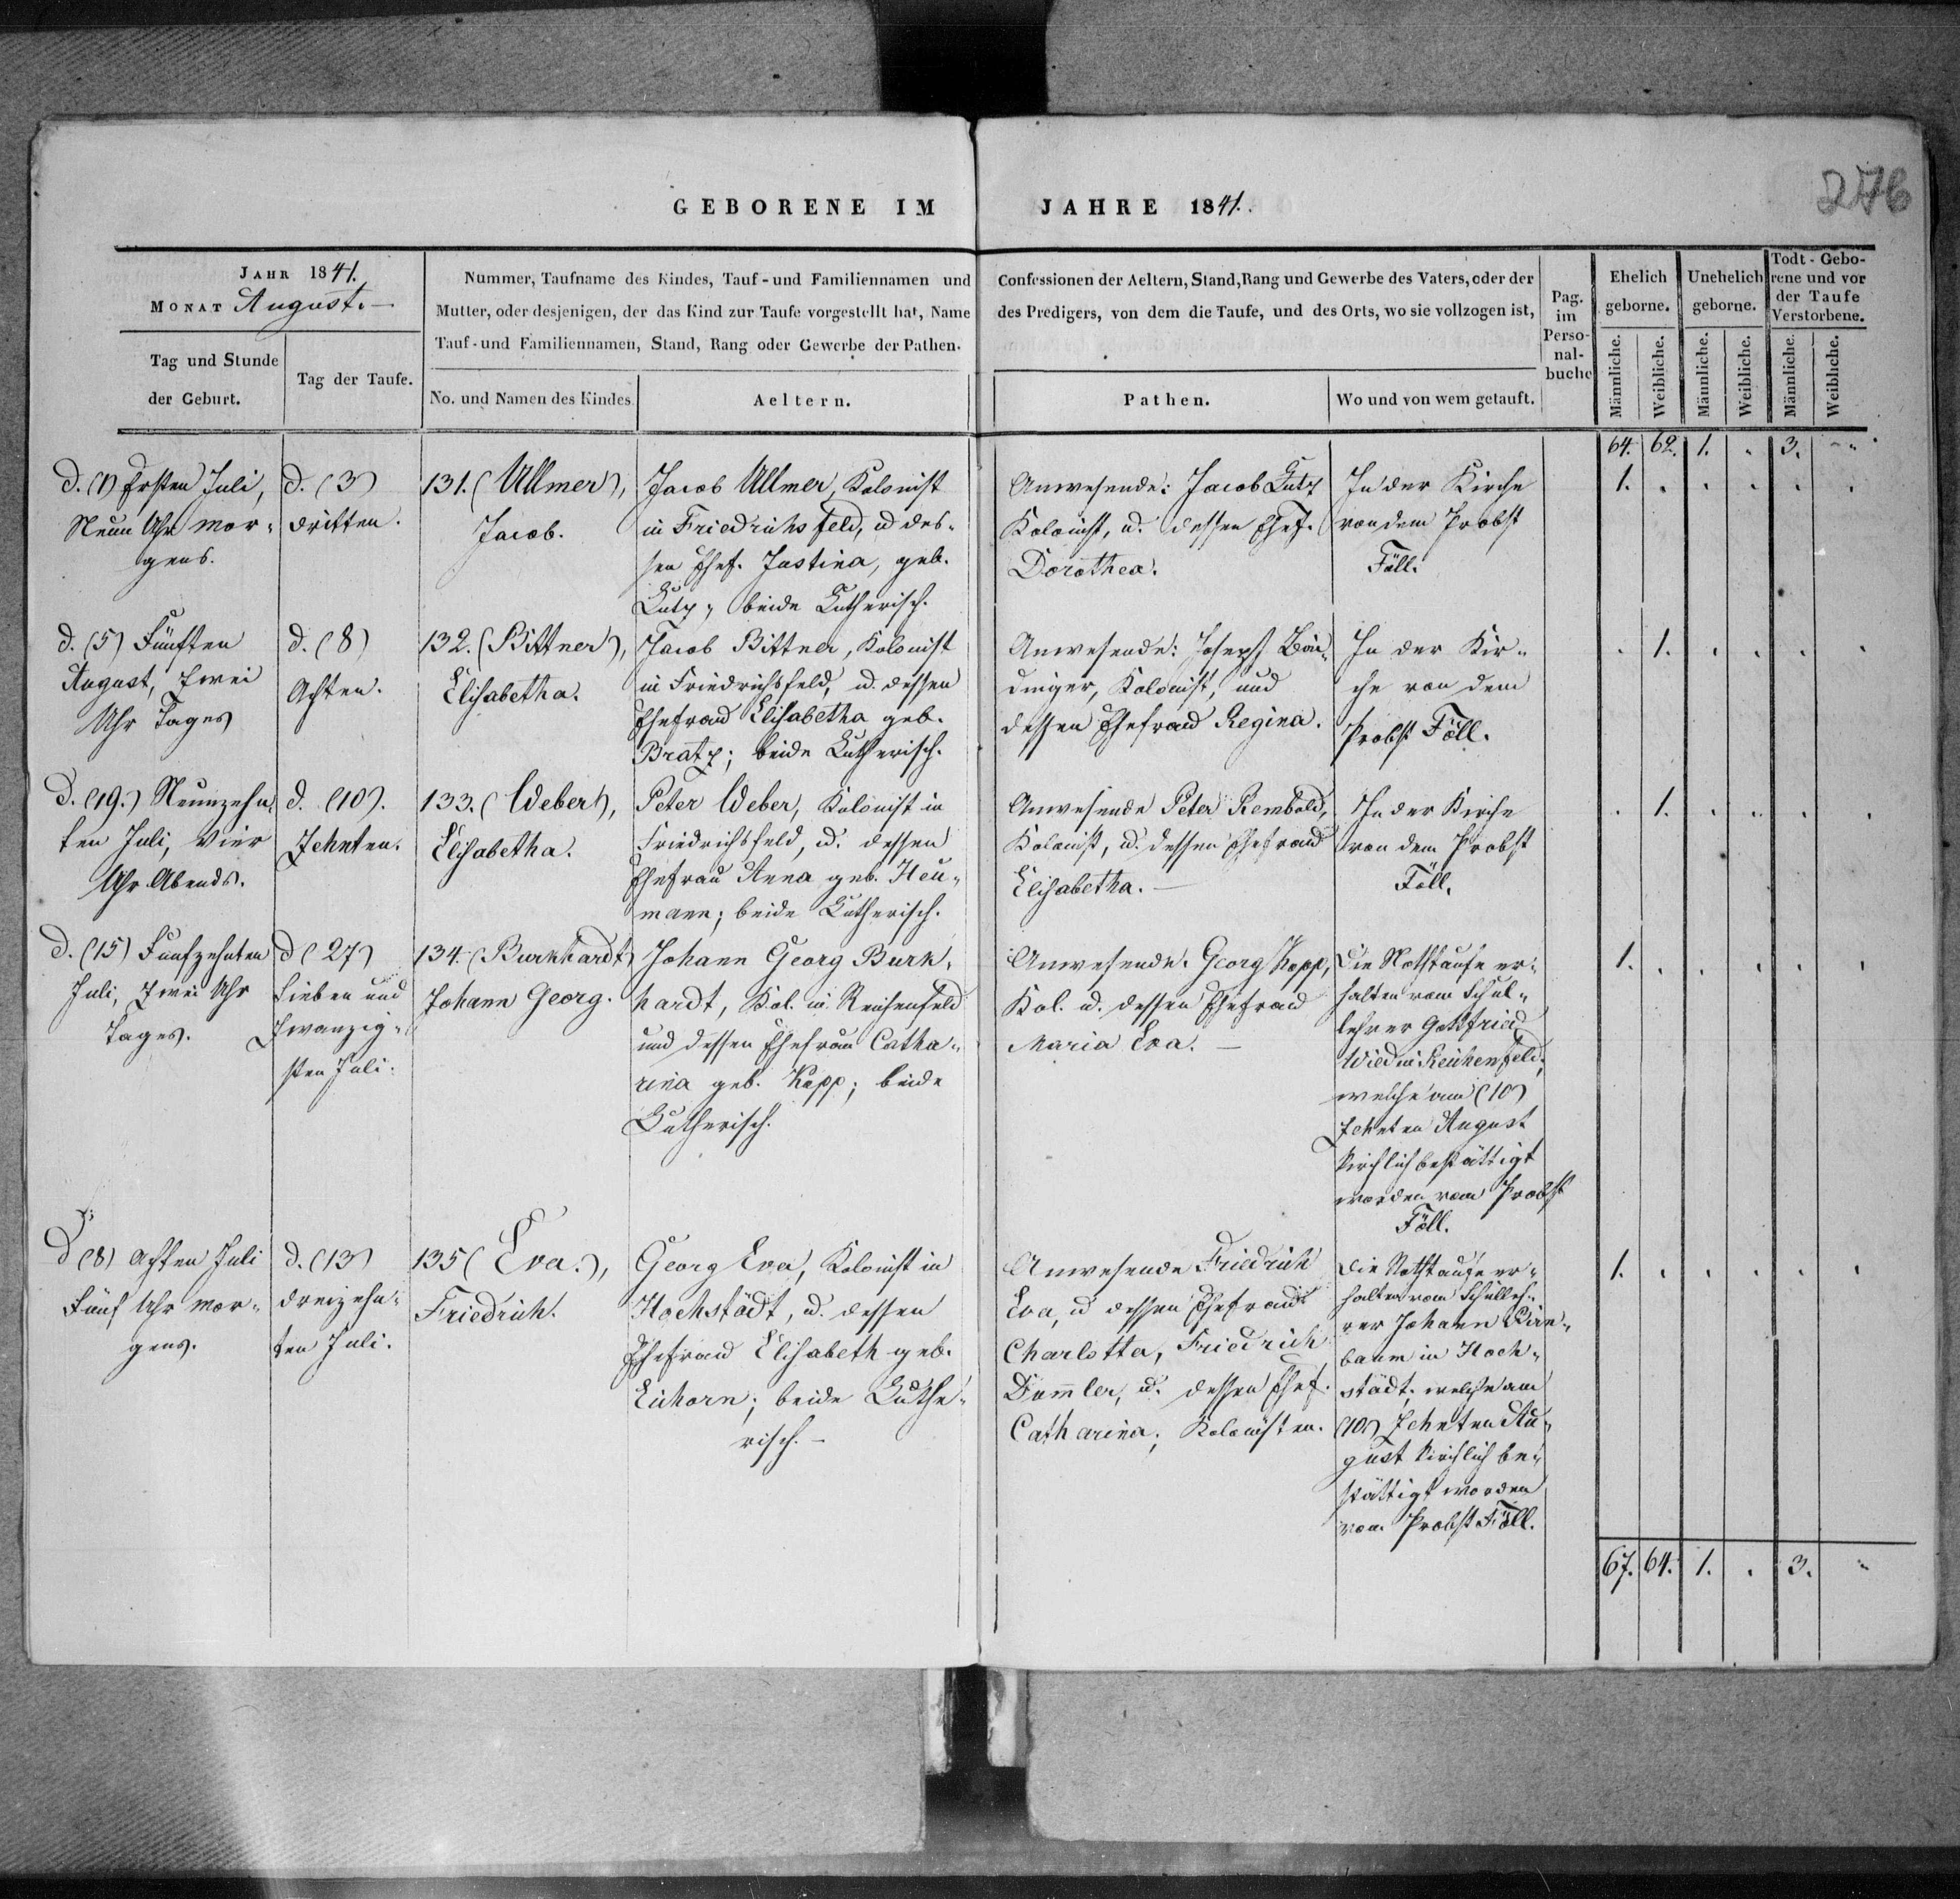 276
GEBORENE IM JAHRE 1841.
JAHR 1841.
MONAT August. —
Tag und Stunde
der Geburt.
Tag der Taufe.
Nummer, Taufname des Kindes, Tauf- und Familiennamen und
Mutter, oder desjenigen, der das Kind zur Taufe vorgestellt hat, Name
Tauf- und Familiennamen, Stand, Rang oder Gewerbe der Pathen.
No. und Namen des Kindes
Aeltern.
Confessionen der Aeltern, Stand, Rang und Gewerbe des Vaters, oder der
des Predigers, von dem die Taufe, und des Orts, wo sie vollzogen ist,
Pathen.
Wo und von wem getauft.
Pag.
im
Perso-
nal-
buche
Ehelich
geborne.
Unehelich
geborne.
Todt-Gebo-
rene und vor
der Taufe
Verstorbene.
Männliche.
Weibliche.
Männliche.
Weibliche.
Männliche.
Weibliche.
64. 62. 1. . 3. ..
d. (1) Ersten Juli,
Neun Uhr mor-
gens.
d. (3)
dritten.
131. (Ullmer),
Jacob.
Jacob Ullmer, Kolonist
in Friedrichsfeld, u des-
sen Ehef. Justina, geb.
Lutz; beide Lutherisch.
Anwesende: Jacob Lutz
Kolonist, u. dessen Ehef.
Dorothea.
In der Kirche
von dem Probst
Föll.
1. . . . . .
d. (5) Fünften
August, Zwei
Uhr Tages
d. (8)
Achten.
132. (Bittner),
Elisabetha.
Jacob Bittner, Kolonist
in Friedrichsfeld, u. dessen
Ehefrau Elisabetha geb.
Bratz; beide Lutherisch.
Anwesende: Joseph
dinger, Kolonist, und
dessen Ehefrau Regina.
In der Kir-
che von dem
Probst Föll.
. 1. . . . .
d. (19.) Neunzehn-
ten Juli, Vier
Uhr Abends.
d. (10).
Zehnten.
133. (Weber),
Elisabetha.
Peter Weber, Kolonist in
Friedrichsfeld, u. dessen
Ehefrau Anna geb. Heu-
mann; beide Lutherisch.
Anwesende Peter Rembold,
Kolonist, u. dessen Ehefrau
Elisabetha. —
In der Kirche
von dem Probst
Föll.
. 1. . . . .
d. (15) Funfzehnten
Juli, Zwei Uhr
Tages.
d (27)
Sieben und
Zwanzig-
sten Juli.
134. (Burkhardt)
Johann Georg.
Johann Georg Burk-
hardt, Kol. in Reichenfeld
und dessen Ehefrau Catha-
rina geb. Kopp; beide
Lutherisch.
Anwesende. Georg Kopp,
Kol. u. dessen Ehefrau
Maria Eva. —
Die Nothtaufe er-
halten vom Schul-
lehrer Gottfried
Wied in Reichenfeld,
welche am (10)
Zehnten August
kirchlich bestättigt
worden vom Probst
Föll.
1. . . . . .
d (8) Achten Juli
Fünf Uhr mor-
gens.
d. (13)
dreizehn-
ten Juli.
135 (Eva.),
Friedrich.
Georg Eva, Kolonist in
Hochstädt, u. dessen
Ehefrau Elisabeth geb.
Eichorn; beide Luthe-
risch. —
Anwesende Friedrich
Eva, u dessen Ehefrau
Charlotta, Friedrich
Dommler, u. dessen Ehef.
Catharina; Kolonisten.
Die Nothtaufe er-
halten vom Schulleh-
rer Johann Birn-
baum in Hoch-
städt, welche am
(10) Zehnten Au-
gust kirchlich be-
stättigt worden
vom Probst Föll.
1. . . . . .
67. 64. 1. . 3. ..